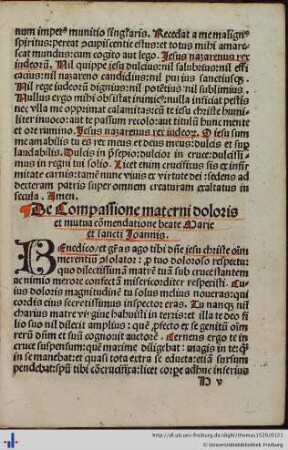 num imperij munitio singlaris. Recedat a me malignus
spiritus: pereat ↄcupiscentie estus: et totus mihi amare-
scat mundus: cum cogito aut lego. Jesus nazarenus rex
iudeorū. Nil quippe iesu dulcius: nil salubrius: nil effi
cacius: nil nazareno candidius: nil purius sanctiusq̃.
Nil rege iudeorū dignius: nil potētius: nil sublimius.
Nullus ergo mihi obsistat inimicus: nulla inficiat pestis
nec vlla me opprimat calamitas: cū te iesu christe humi
liter inuoco: aut te passum recolo: aut titulū hunc mente
et ore rumino. Jesus nazarenus rex iudeorū. O iesu sum
me amabilis tu es rex meus et deus meus: dulcis et sup
laudabilis. Dulcis in p̃sepio: dulcior in cruce: dulcissi
mus in regni tui solio. Licet enim crucifixus sis ex infir
mitate carnis: tamē nunc viuis ex virtute dei: sedens ad
dexteram patris super omnem creaturam exaltatus in
secula. Amen.
De Compassione materni doloris
et mutua cōmendatione beate Marie
et sancti Joannis.
BEnedico et grās ago tibi dñe iesu christe oīm
merentiū ↄsolator: pro tuo doloroso respectu:
quo dilectissimā matrē tuā sub cruce stantem
ac nimio merore confectā misericorditer respexisti. Cu
ius doloris magnitudinē tu solus melius noueras: qui
cordis eius secretissimus inspector eras. Tu nanq̃ nil
charius matre virgine habuisti in terris: et illa te deo fi
lio suo nil dilexit amplius: quē profecto ex se genitū oīm
rerū dñm et suū cognouit auctorē. Cernens ergo te in
cruce suspensum: quē maxime diligebat: magis in te: q̃
in se manebat: et quasi tota extra se educta: etiā sursum
pendebat: spū tibi cōcrucifixa: licet corpe adhuc inferius
H v
http://dl.ub.uni-freiburg.de/diglit/thomas1520/0121
© Universitätsbibliothek Freiburg